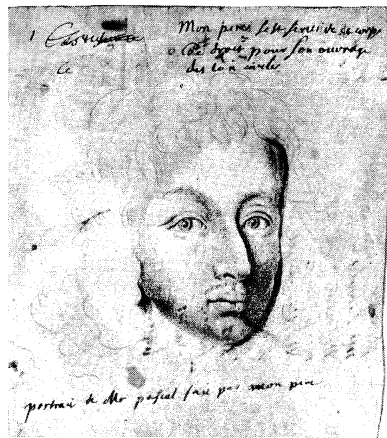 Mon pere s'est servi de ce corps
de droit pour son ouvrage
des loix civiles
portrait de Mr pascal fait par mon pere